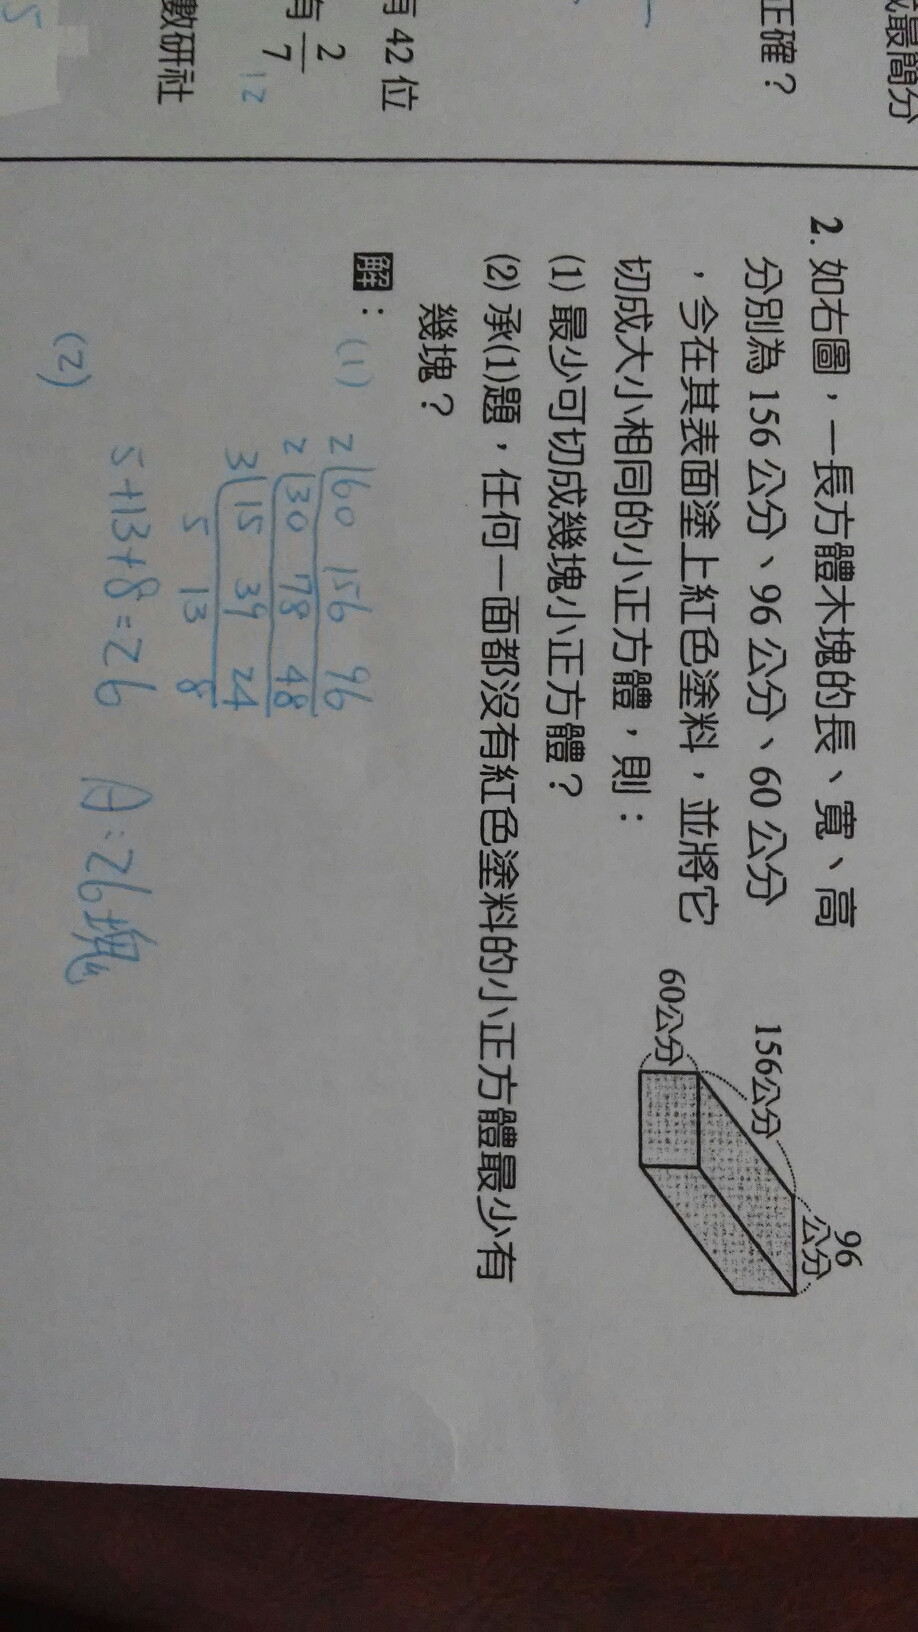 成最簡分
正確？
有 42 位
有 2/7
12
數研社
5
2. 如右圖，一長方體木塊的長、寬、高
分別為 156 公分、96 公分、60 公分
，今在其表面塗上紅色塗料，並將它
切成大小相同的小正方體，則：
(1) 最少可切成幾塊小正方體？
(2) 承(1)題，任何一面都沒有紅色塗料的小正方體最少有
幾塊？
60公分
156公分
96
公分
解：(1)
2 60 156 96
2 30 78 48
3 15 39 24
5 13 8
5+13+8=26 A:26塊
(2)